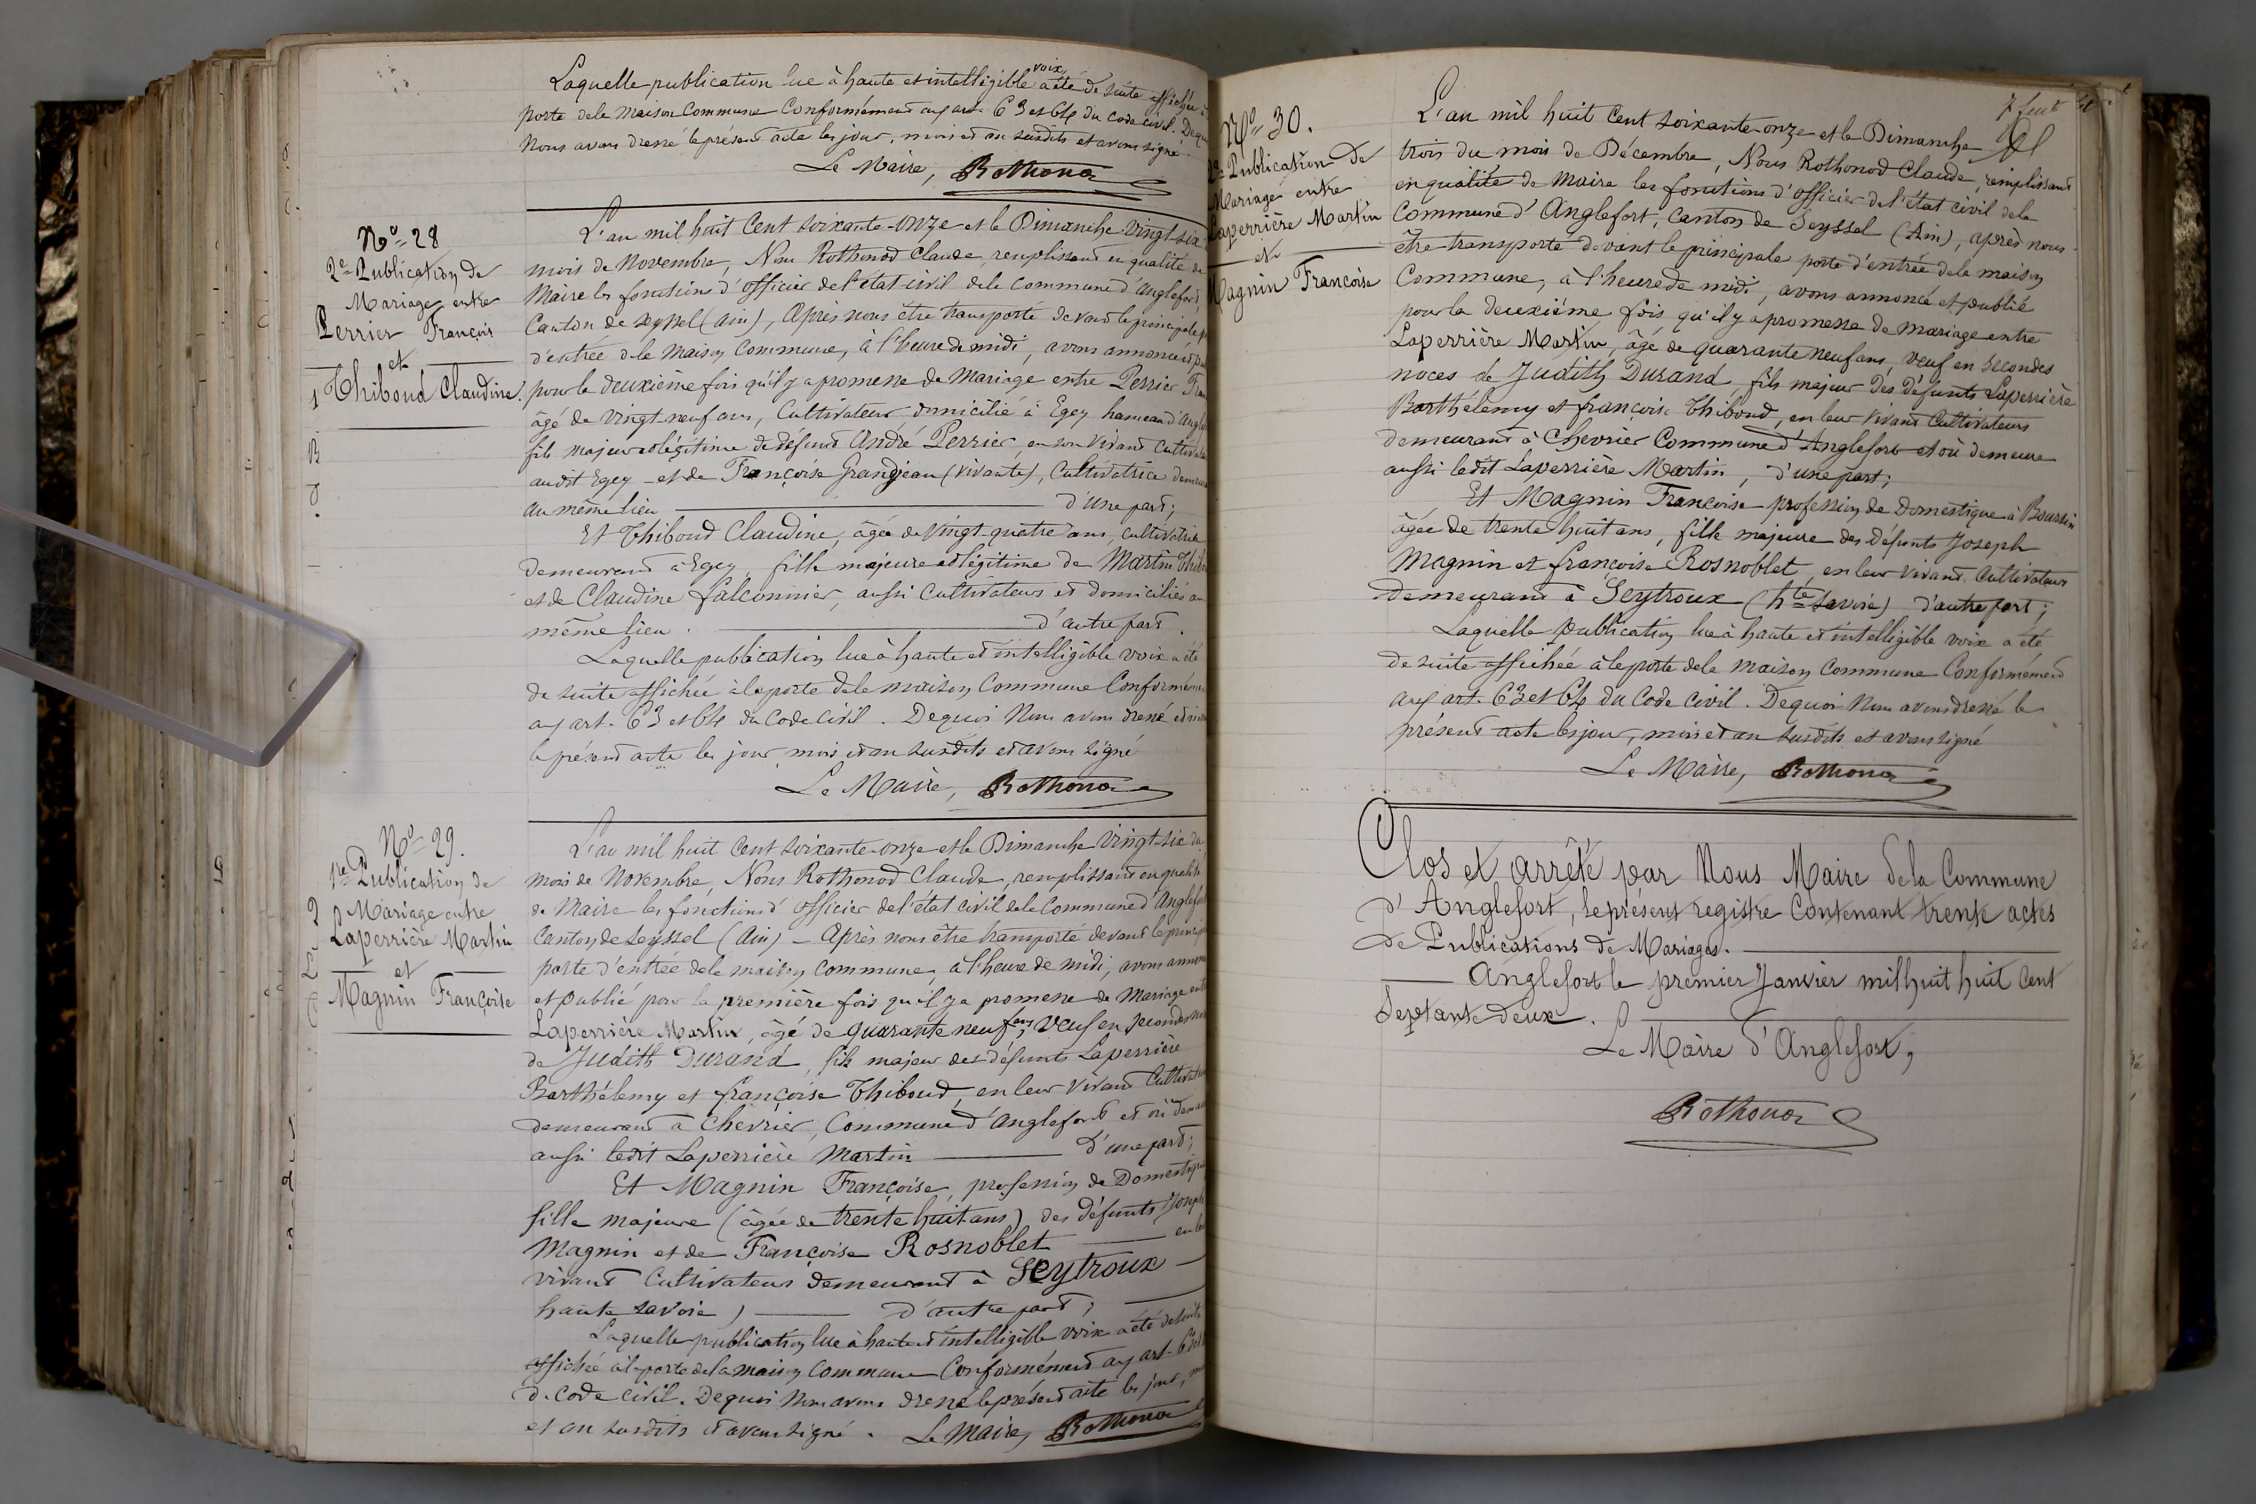 Laquelle publication lue à haute et intelligible voix a été de suite affichée à
porte de la Maison Commune Conformément aux art. 63 et 64 du code civil. De
Nous avons dressé le présent acte les jour, mois et an susdits et avons signé.
Le Maire, Rothonod
N° 28
2e Publication de
Mariage entre
Perrier François
et
Thiboud Claudine.
L'an mil huit Cent soixante-onze et le Dimanche vingt-six
mois de Novembre, Nous Rothonod Claude, remplissant en qualité de
Maire les fonctions d'officier de l'état civil de la commune d'Anglefort,
Canton de Seyssel (Ain), Après nous être transporté devant la principale
d'entrée de la Maison Commune, à l'heure de midi, avons annoncé et
pour la deuxième fois qu'il y a promesse de Mariage entre Perrier
âgé de vingt-neuf ans, Cultivateur domicilié à Egey hameau d'
fils majeur et légitime de défunt André Perrier, en son vivant
audit Egey - et de Françoise Grandjean (vivante), Cultivatrice
au même lieu d'une part;
Et Thiboud Claudine, âgée de vingt-quatre ans, cultivatrice
demeurant à Egey, fille majeure et légitime de Martin
et de Claudine falconnier, aussi Cultivateurs et domiciliés au
même lieu. d'autre part.
Laquelle publication lue à haute et intelligible voix a été
de suite affichée à la porte de la maison Commune Conformément
aux art. 63 et 64 du Code Civil. De quoi Nous avons dressé
le présent acte les jour, mois et an susdits et avons signé
Le Maire, Rothonod
N° 29.
1re Publication de
Mariage entre
Laperrière Martin
et
Magnin Françoise
L'an mil huit Cent soixante-onze et le Dimanche vingt-six du
mois de Novembre, Nous Rothonod Claude, remplissant en qualité
de Maire les fonctions d'officier de l'état civil de la Commune d'
Canton de Seyssel (Ain) - Après nous être transporté devant la
porte d'entrée de la maison commune, à l'heure de midi, avons
et publié pour la première fois qu'il y a promesse de Mariage
Laperrière Martin, âgé de quarante neuf ans, veuf en secondes
de Judith Durand, fils majeur des défunts Laperrière
Barthélemy et françoise Thiboud, en leur vivant
demeurant à Chevrier, Commune d'Anglefort et où
aussi ledit Laperrière Martin d'une part;
Et Magnin Françoise, profession de
fille majeure (âgée de trente huit ans) des défunts Joseph
Magnin et de Françoise Rosnoblet en
vivant Cultivateurs demeurant à Seytroux
haute Savoie) d'autre part;
Laquelle publication lue à haute et intelligible voix a été de suite
affichée à la porte de la maison commune Conformément aux art.
du Code civil. De quoi Nous avons dressé le présent acte les jour,
et an susdits et avons signé. Le Maire, Rothonod
N° 30.
2e Publication de
Mariage entre
Laperrière Martin
et
Magnin Françoise
L'an mil huit Cent soixante-onze et le Dimanche
trois du mois de Décembre, Nous Rothonod Claude, remplissant
en qualité de Maire les fonctions d'officier de l'état civil de la
Commune d'Anglefort, Canton de Seyssel (Ain), après nous
être transporté devant la principale porte d'entrée de la maison
Commune, à l'heure de midi, avons annoncé et publié
pour la deuxième fois qu'il y a promesse de mariage entre
Laperrière Martin, âgé de quarante neuf ans, veuf en secondes
noces de Judith Durand, fils majeur des défunts Laperrière
Barthélemy et françoise Thiboud, en leur vivant Cultivateurs
demeurant à Chevrier Commune d'Anglefort et où demeure
aussi ledit Laperrière Martin, d'une part;
Et Magnin Françoise profession de Domestique à
âgée de trente huit ans, fille majeure des défunts Joseph
Magnin et françoise Rosnoblet, en leur vivant Cultivateurs
demeurant à Seytroux (hte Savoie) d'autre part;
Laquelle publication lue à haute et intelligible voix a été
de suite affichée à la porte de la maison Commune Conformément
aux art. 63 et 64 du Code Civil. De quoi Nous avons dressé le
présent acte les jour, mois et an susdits et avons signé
Le Maire, Rothonod
Clos et arrêté par Nous Maire de la Commune
d'Anglefort, le présent registre Contenant trente actes
de Publications de Mariages.
Anglefort le premier Janvier mil huit huit Cent
Septante deux.
Le Maire d'Anglefort,
Rothonod